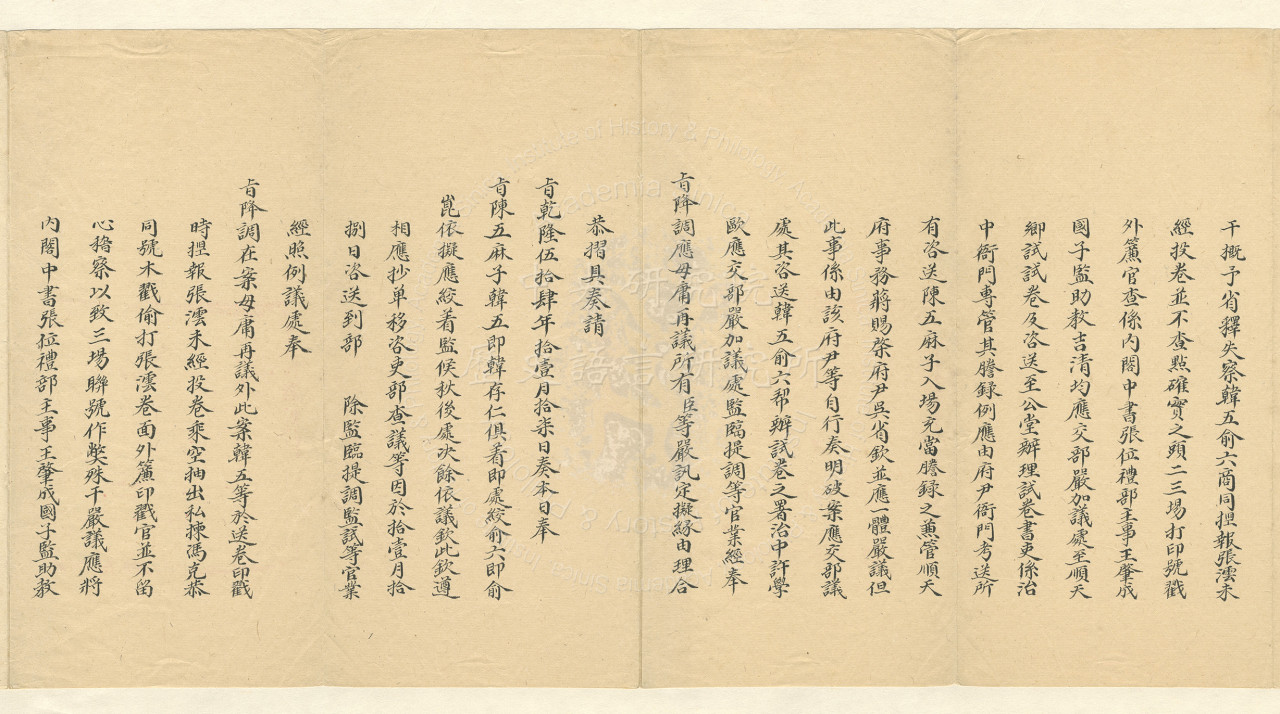 干摡予省釋失察韓五俞六商同捏報張澐未
經投卷並不查點確實之頭二三場打印號戳
外簾官查係內閣中書張位禮部主事王肇成
國子監助教吉清均應交部嚴加議處至順天
鄉試試卷及咨送至公堂辦理試卷書吏係治
中衙門專管其謄錄例應由府尹衙門考送所
有咨送陳五麻子入場充當謄錄之兼管順天
府事務蔣賜棨府尹吳省欽並應一體嚴議但
此事係由該府尹等自行奏明破案應交部議
處其咨送韓五俞六幫辦試卷之署治中許學
歐應交部嚴加議處監臨提調等官業經奉
旨降調應毋庸再議所有臣等嚴訊定擬緣由理合
恭摺具奏請
旨乾隆伍拾肆年拾壹月拾柒日奏本日奉
旨陳五麻子韓五即韓存仁俱著即處絞俞六即俞
崑依擬應絞着監候秋後處決餘依議欽此欽遵
相應抄单移咨吏部查議等因於拾壹月拾
捌日咨送到部 除監臨提調監試等官業
經照例議處奉
旨降調在案毋庸再議外此案韓五等於送卷印戳
時捏報張澐未經投卷乘空抽出私揀馮克恭
同號木戳偷打張澐卷面外簾印戳官並不留
心稽察以致三場聯號作獘殊干嚴議應將
內閣中書張位禮部主事王肇成國子監助教
中央研究院
歷史語言研究所
Institute of History & Philology, Academia Sinica